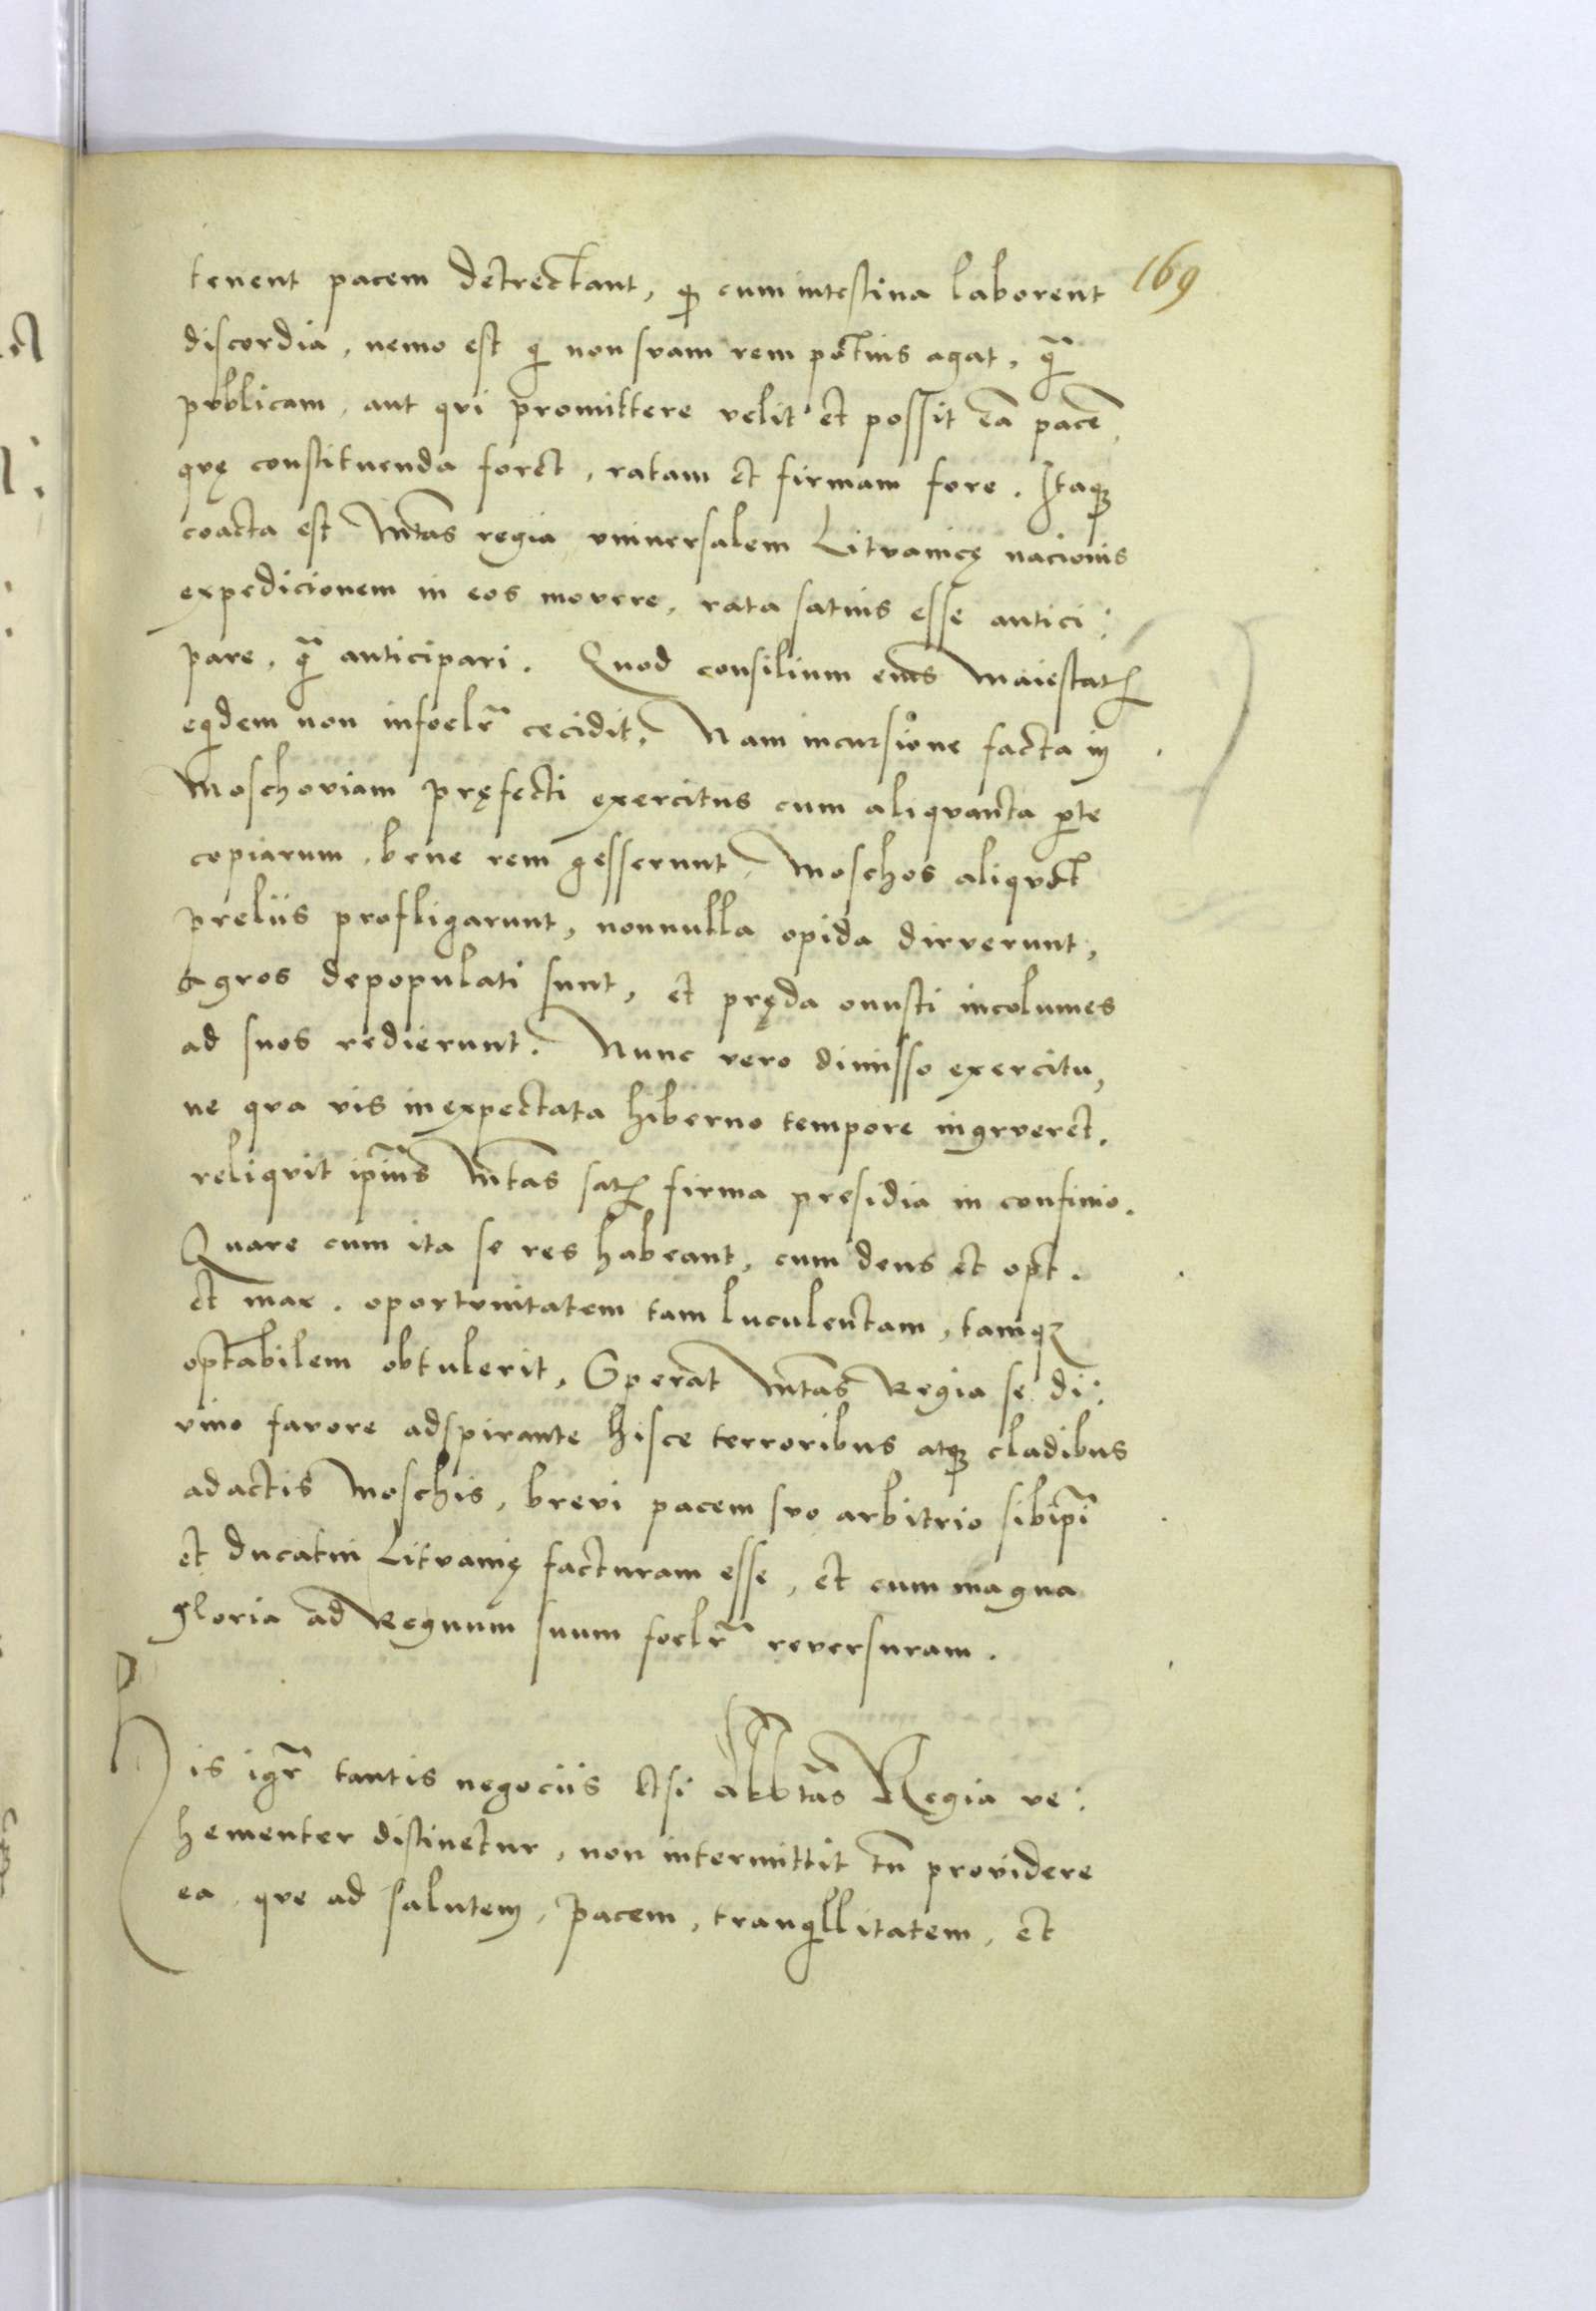 169
tenent pacem detrectant, qꝫ cum intestina laborent
discordia, nemo est qͥ non suam rem potius agat, qͣ̃
publicam, aut qui promittere velit et possit eā pacē,
quę constituenda foret, ratam et firmam fore. Itaqꝫ
coacta est Mtas regia vniuersalem Litvanicę nacionis
expedicionem in eos movere, rata satius esse antici:
pare, qͣ̃ anticipari. Quod consilium eius Maiestatꝭ
eqͥdem non infoelr̃ cecidit, Nam incursione facta in
Moschoviam pręfecti exercitus cum aliqvanta ꝑte
copiarum, bene rem gesserunt, Moschos aliqvot
preliis profligarunt, nonnulla opida dirverunt,
Agros depopulati sunt, et pręda onusti incolumes
ad suos redierunt. Nunc vero dimisso exercitu,
ne qva vis inexpectata hiberno tempore ingrveret,
reliqvit ip̃ius Mtas satꝭ firma presidia in confinio.
Quare cum ita se res habeant, cum deus et opt.
et max. oportvnitatem tam luculentam, tamqꝫ
optabilem obtulerit, Sperat Mtas Regia se di:
vino favore adspirante hisce terroribus atqꝫ cladibus
adactis Moschis, brevi pacem svo arbitrio sibip̃i
et ducatui Litvanię facturam esse, et cum magna
gloria ad Regnum suum foelr̃ reversuram.
His igr̃ tantis negociis Etsi Mtas Regia ve:
hementer distinetur, non intermittit tn̄ providere
ea, qve ad salutem, pacem, tranqͥllitatem, et